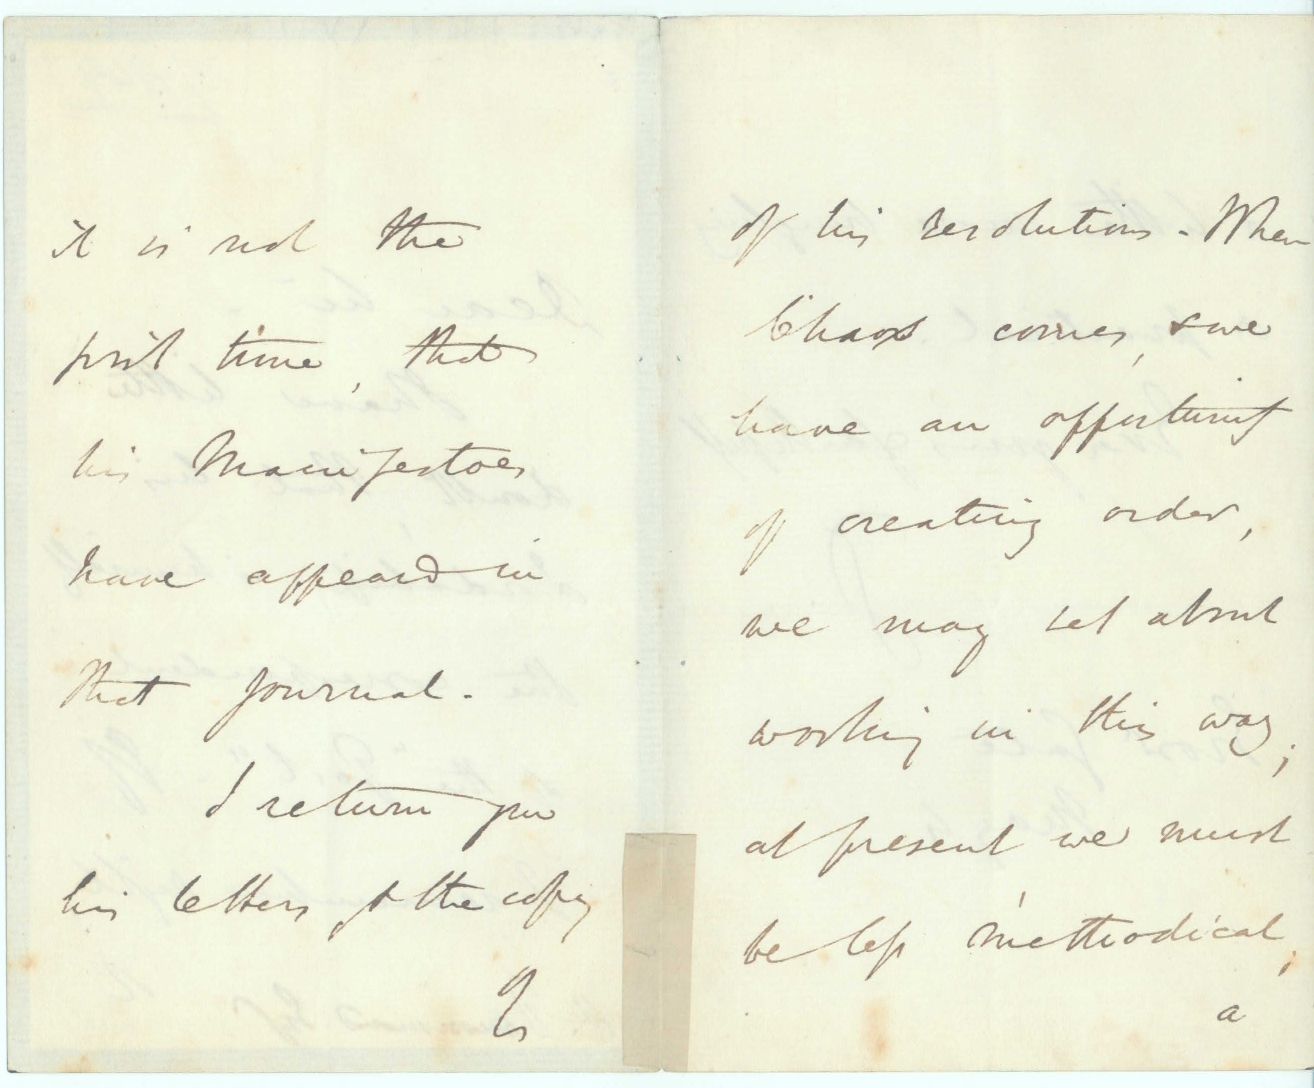 it is not the
first time, that
his Manifestoes
have appeard in
that journal.
I return you
his letters, & the copy
of his resolutions. When
Chaos comes, & we
have an opportunity
of creating order,
we may set about
working in this way;
at present we must
be less methodical,
a